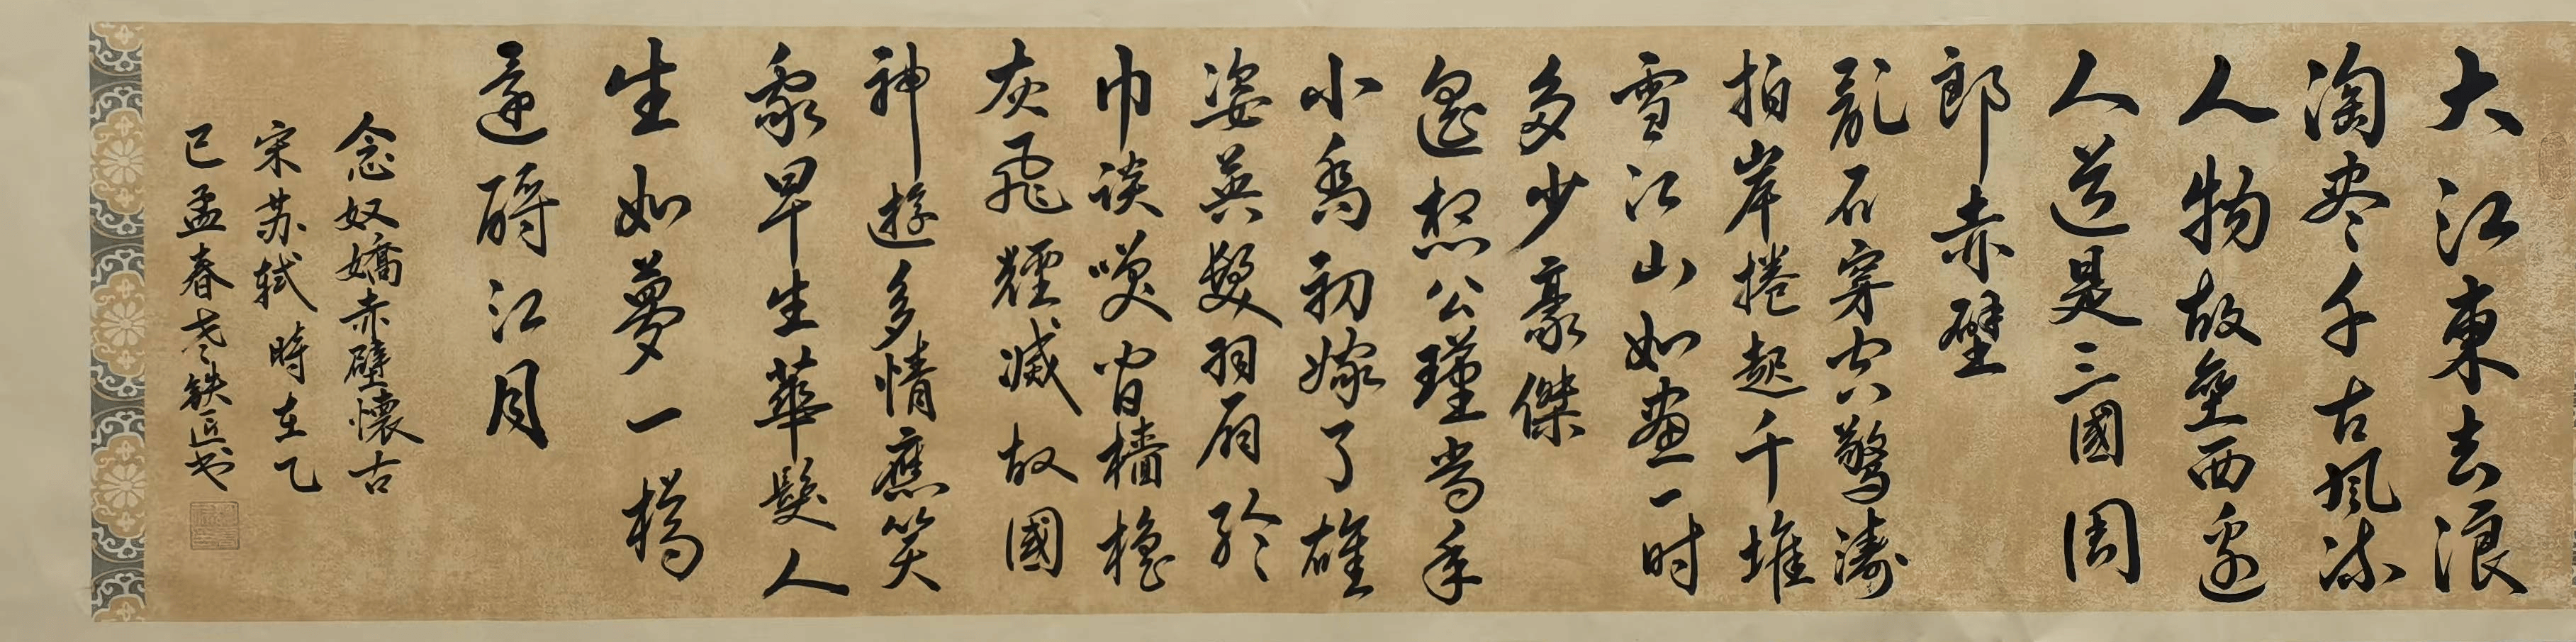 大江東去浪
淘尽千古風流
人物故垒西邊
人道是三國周
郎赤壁
亂石穿空驚濤
拍岸捲起千堆
雪江山如畫一时
多少豪傑
遙想公瑾當年
小喬初嫁了雄
姿英發羽扇綸
巾談咲間檣櫓
灰飛煙滅故國
神遊多情應笑
我早生華髮人
生如夢一樽
還酹江月
念奴嬌赤壁懷古
宋苏轼時在乙
巳孟春老铁匠书